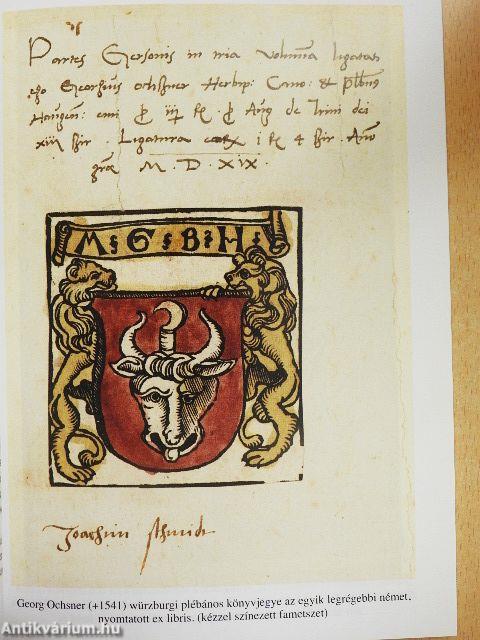 Partes Gersonis in tria Volumina ligatas
ego Georgius Ochsner Herbip: Cano: &
Haugen: emi Aug de
xiii Ligatura i 4 Ano
M. D. XIX.
M:G:B:H:
Joachim Schmidt
Georg Ochsner (+1541) würzburgi plébános könyvjegye az egyik legrégebbi német,
nyomtatott ex libris. (kézzel színezett fametszet)
Antikvárium.hu